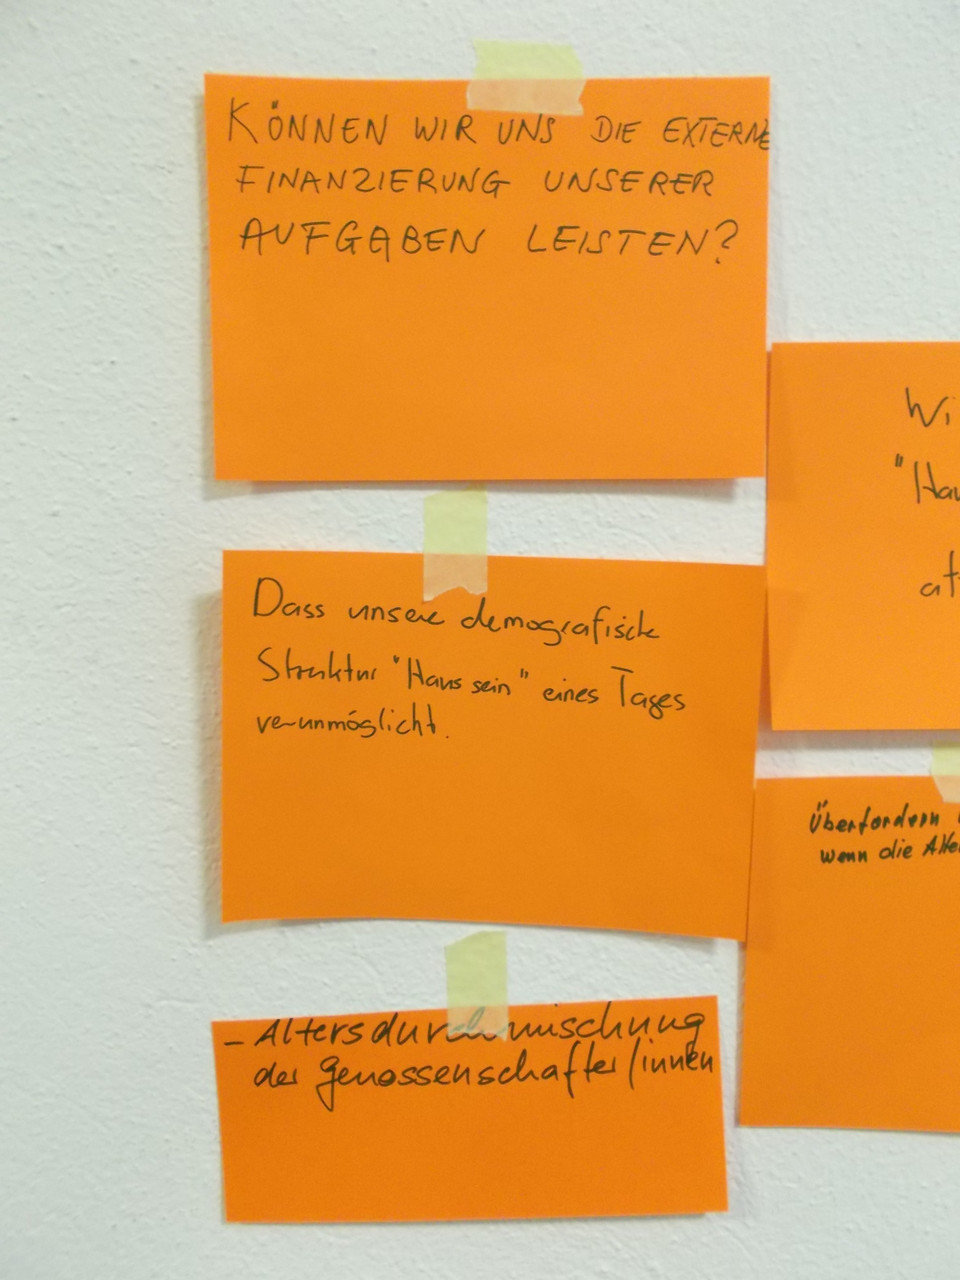 KÖNNEN WIR UNS DIE EXTERNE
FINANZIERUNG UNSERER
AUFGABEN LEISTEN?
Dass unsere demografische
Struktur "Haus sein" eines Tages
verunmöglicht.
- Altersdurchmischung
der Genossenschafter/innen
Wi
"Hau
Überfordern
wenn die Alte